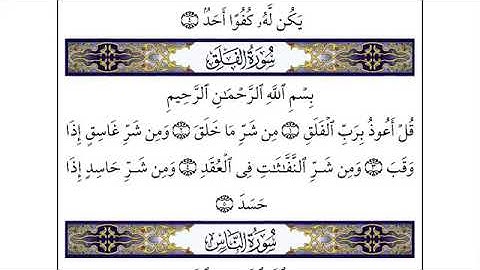 يَكُن لَّهُۥ كُفُوًا أَحَدٌۢ ۝٤
سُورَةُ الفَلَقِ
بِسْمِ اللَّهِ الرَّحْمَـٰنِ الرَّحِيمِ
قُلْ أَعُوذُ بِرَبِّ الْفَلَقِ ۝١ مِن شَرِّ مَا خَلَقَ ۝٢ وَمِن شَرِّ غَاسِقٍ إِذَا
وَقَبَ ۝٣ وَمِن شَرِّ النَّفَّـٰثَـٰتِ فِى الْعُقَدِ ۝٤ وَمِن شَرِّ حَاسِدٍ إِذَا
حَسَدَ ۝٥
سُورَةُ النَّاسِ